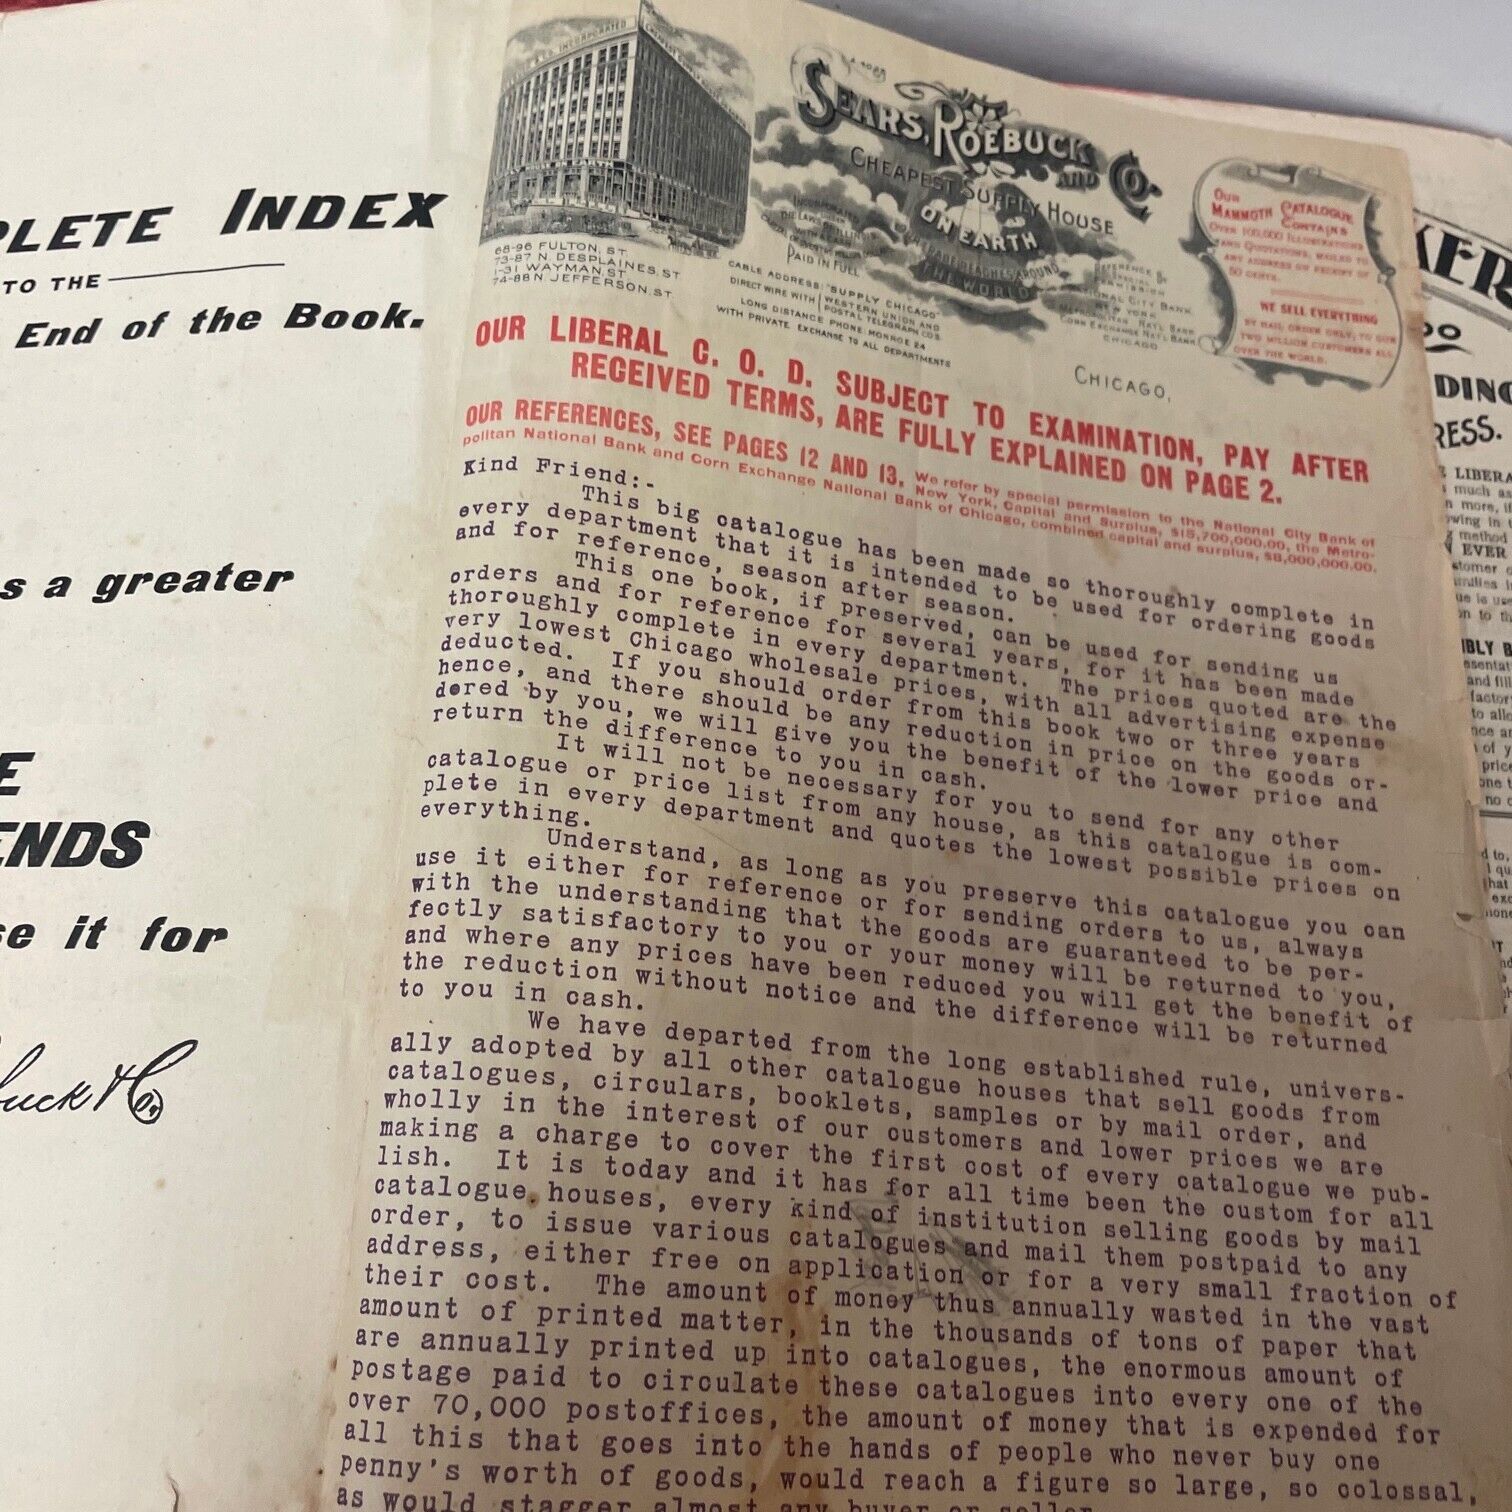 PLETE INDEX
TO THE
End of the Book.
s a greater
E
ENDS
se it for
buck & Co.
INCORPORATED
68-96 FULTON, ST.
73-87 N. DESPLAINES, ST
1-31 WAYMAN, ST.
74-88 N. JEFFERSON, ST.
SEARS, ROEBUCK AND CO.
CHEAPEST SUPPLY HOUSE
ON EARTH
OUR TRADE REACHES AROUND
THE WORLD
INCORPORATED
PAID IN FULL
CABLE ADDRESS: "SUPPLY CHICAGO"
DIRECT WIRE WITH WESTERN UNION AND
POSTAL TELEGRAPH COS.
LONG DISTANCE PHONE MONROE 24
WITH PRIVATE EXCHANGE TO ALL DEPARTMENTS
REFERENCE BY
SPECIAL
PERMISSION
NATIONAL CITY BANK
NEW YORK
METROPOLITAN NAT'L BANK
CORN EXCHANGE NAT'L BANK
CHICAGO
OUR
MAMMOTH CATALOGUE
CONTAINS
OVER 100,000 ILLUSTRATIONS
AND QUOTATIONS; MAILED TO
ANY ADDRESS ON RECEIPT OF
50 CENTS.
WE SELL EVERYTHING
BY MAIL ORDER ONLY; TO OUR
TWO MILLION CUSTOMERS ALL
OVER THE WORLD.
CHICAGO,
OUR LIBERAL C. O. D. SUBJECT TO EXAMINATION, PAY AFTER
RECEIVED TERMS, ARE FULLY EXPLAINED ON PAGE 2.
OUR REFERENCES, SEE PAGES 12 AND 13. We refer by special permission to the National City Bank of
New York, Capital and Surplus, $15,700,000.00, the Metro-
politan National Bank and Corn Exchange National Bank of Chicago, combined capital and surplus, $8,000,000.00.
Kind Friend:-
This big catalogue has been made so thoroughly complete in
every department that it is intended to be used for ordering goods
and for reference, season after season.
This one book, if preserved, can be used for sending us
orders and for reference for several years, for it has been made
thoroughly complete in every department. The prices quoted are the
very lowest Chicago wholesale prices, with all advertising expense
deducted. If you should order from this book two or three years
hence, and there should be any reduction in price on the goods or-
dered by you, we will give you the benefit of the lower price and
return the difference to you in cash.
It will not be necessary for you to send for any other
catalogue or price list from any house, as this catalogue is com-
plete in every department and quotes the lowest possible prices on
everything.
Understand, as long as you preserve this catalogue you can
use it either for reference or for sending orders to us, always
with the understanding that the goods are guaranteed to be per-
fectly satisfactory to you or your money will be returned to you,
and where any prices have been reduced you will get the benefit of
the reduction without notice and the difference will be returned
to you in cash.
We have departed from the long established rule, univers-
ally adopted by all other catalogue houses that sell goods from
catalogues, circulars, booklets, samples or by mail order, and
wholly in the interest of our customers and lower prices we are
making a charge to cover the first cost of every catalogue we pub-
lish. It is today and it has for all time been the custom for all
catalogue houses, every kind of institution selling goods by mail
order, to issue various catalogues and mail them postpaid to any
address, either free on application or for a very small fraction of
their cost. The amount of money thus annually wasted in the vast
amount of printed matter, in the thousands of tons of paper that
are annually printed up into catalogues, the enormous amount of
postage paid to circulate these catalogues into every one of the
over 70,000 postoffices, the amount of money that is expended for
all this that goes into the hands of people who never buy one
penny's worth of goods, would reach a figure so large, so colossal,
as would stagger almost any buyer or seller.
KERS
DO
DING
RESS.
LIBERA
much as
n more, if
method
EVER
IBLY B
and fill
factor
to allo
of y
price
one t
no c